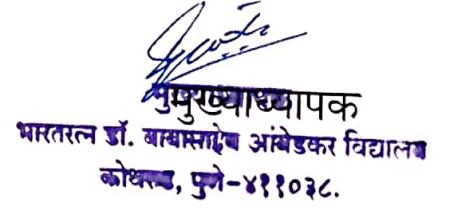 मुख्याध्यापक
भारतरत्न डॉ. बाबासाहेब आंबेडकर विद्यालय
कोथरूड, पुणे-४११०३८.